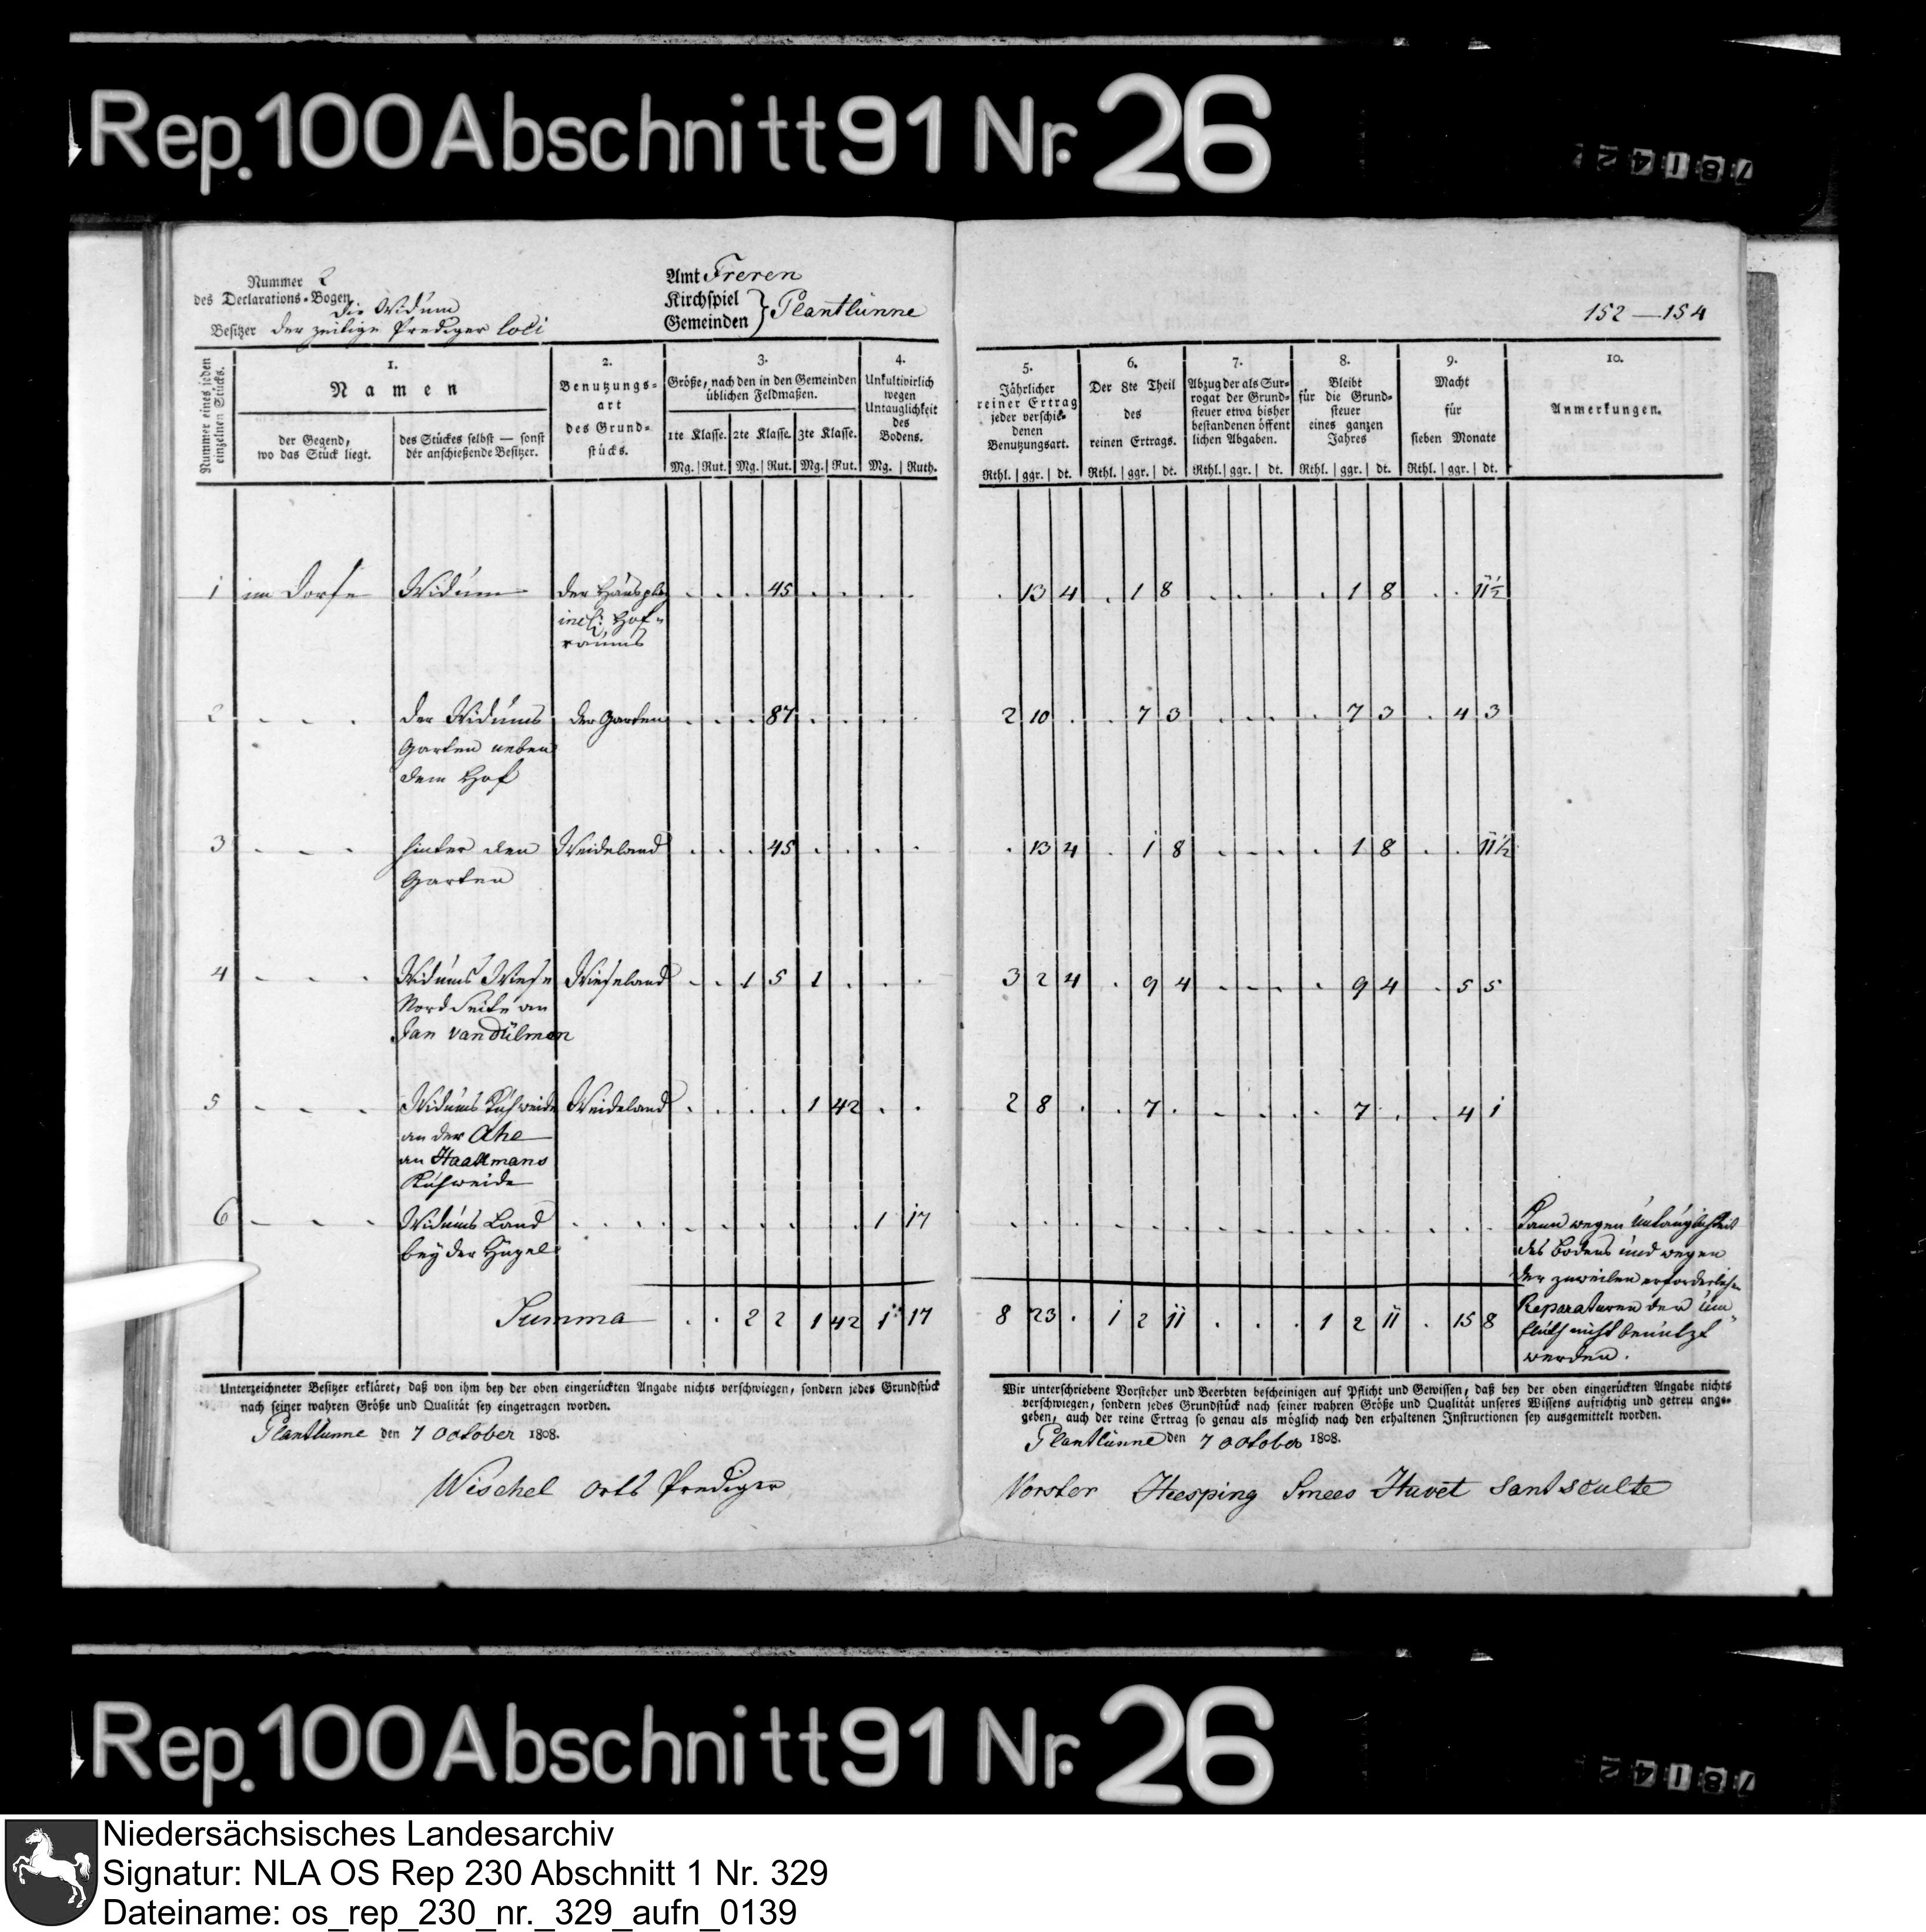 Rep. 100 Abschnitt 91 Nr. 26
78142
Nummer 2
des Declarations-Bogen
die Widum
Besitzer der zeitige Prediger loci
Amt Freren
Kirchspiel
Gemeinden } Plantlünne
152 — 154
Nummer eines jeden einzelnen Stücks.
1.
Namen
der Gegend, wo das Stück liegt.
des Stückes selbst — sonst der anschießende Besitzer.
2.
Benutzungs-art des Grund-stücks.
3.
Größe, nach den in den Gemeinden üblichen Feldmaßen.
1te Klasse. 2te Klasse. 3te Klasse.
Mg. | Rut. Mg. | Rut. Mg. | Rut.
4.
Unkultivirlich wegen Untauglichkeit des Bodens.
Mg. | Ruth.
5.
Jährlicher reiner Ertrag jeder verschie-denen Benutzungsart.
Rthl. | ggr. | dt.
6.
Der 8te Theil des reinen Ertrags.
Rthl. | ggr. | dt.
7.
Abzug der als Sur-rogat der Grund-steuer etwa bisher bestandenen öffent lichen Abgaben.
Rthl. | ggr. | dt.
8.
Bleibt für die Grund-steuer eines ganzen Jahres
Rthl. | ggr. | dt.
9.
Macht für sieben Monate
Rthl. | ggr. | dt.
10.
Anmerkungen.
1 im Dorfe Widum der Hausplatz . . . 45 . . . . . 13 4 . 1 8 . . . . 1 8 . . 11½
incl: Hof-
raums
2 - - - der Widums der Garten . . . 87 . . . . 2 10 . . 7 3 . . . . 7 3 . 4 3
Garten neben
dem Hof
3 - - - hinter den Weideland . . . 45 . . . . . 13 4 . 1 8 . . . . 1 8 . . 11½
Garten
4 - - - Widums Wiese Wieseland . . 1 5 1 . . . 3 2 4 . 9 4 . . . . 9 4 . 5 5
Nord Seite an
Jan van Dülmen
5 - - - Widums Kuhweide Weideland . . . . 1 42 . . 2 8 . . 7 . . . . . 7 . . 4 1
an der Ahe
an Haakmans
Kuhweide
6 - - - Widums Land . . . . . . . . . 1 17 . . . . . . . . . . . . . . .
bey der Hügel
Kann wegen Untauglichkeit
des Bodens und wegen
der zuweilen erforderlichen
Reparaturen der
nicht benutzt
werden.
Summa . . 2 2 1 42 1 17 8 23 . 1 2 11 . . . 1 2 11 . 15 8
Unterzeichneter Besitzer erkläret, daß von ihm bey der oben eingerückten Angabe nichts verschwiegen, sondern jedes Grundstück
nach seiner wahren Größe und Qualität sey eingetragen worden.
Plantlunne den 7 October 1808.
Wischel orts Prediger
Wir unterschriebene Vorsteher und Beerbten bescheinigen auf Pflicht und Gewissen, daß bey der oben eingerückten Angabe nichts
verschwiegen, sondern jedes Grundstück nach seiner wahren Größe und Qualität unseres Wissens aufrichtig und getreu ange-
geben, auch der reine Ertrag so genau als möglich nach den erhaltenen Instructionen sey ausgemittelt worden.
Plantlünne den 7 October 1808.
Vorster Heesping Smees Havet Santsculte
Rep. 100 Abschnitt 91 Nr. 26
78142
Niedersächsisches Landesarchiv
Signatur: NLA OS Rep 230 Abschnitt 1 Nr. 329
Dateiname: os_rep_230_nr._329_aufn_0139